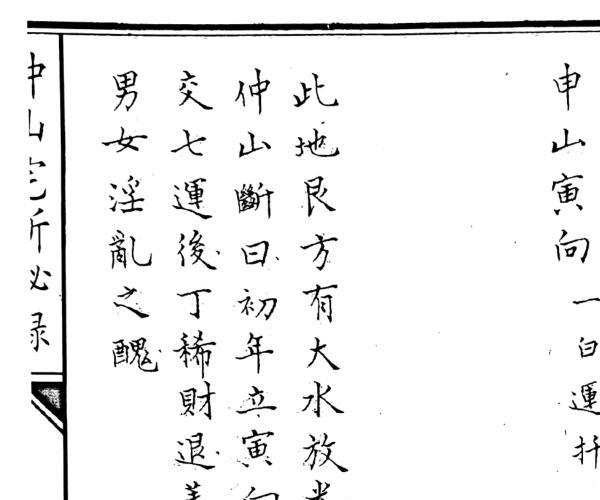 申山寅向
一白運扦
此地艮方有大水放光
仲山斷曰初年立寅向
交七運後丁稀財退蓋
男女淫亂之醜
仲山宅斷秘録